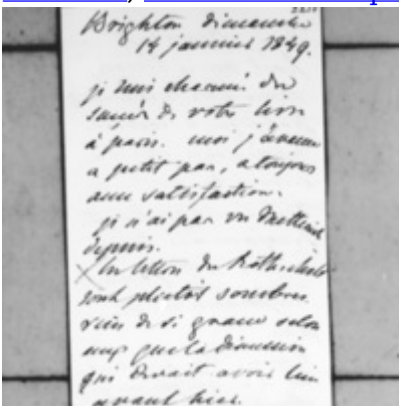 Brighton dimanche
14 janvier 1849.
je suis charmé du
succès de votre livre
à paris. moi j'avance
a petit pas, a toujours
avec satisfaction.
je n'ai pas vu Metternich
depuis.
les lettres du Rothschild
sont plutôt sombres.
rien de si grave selon
eux que la
qui devait avoir lieu
avant hier.